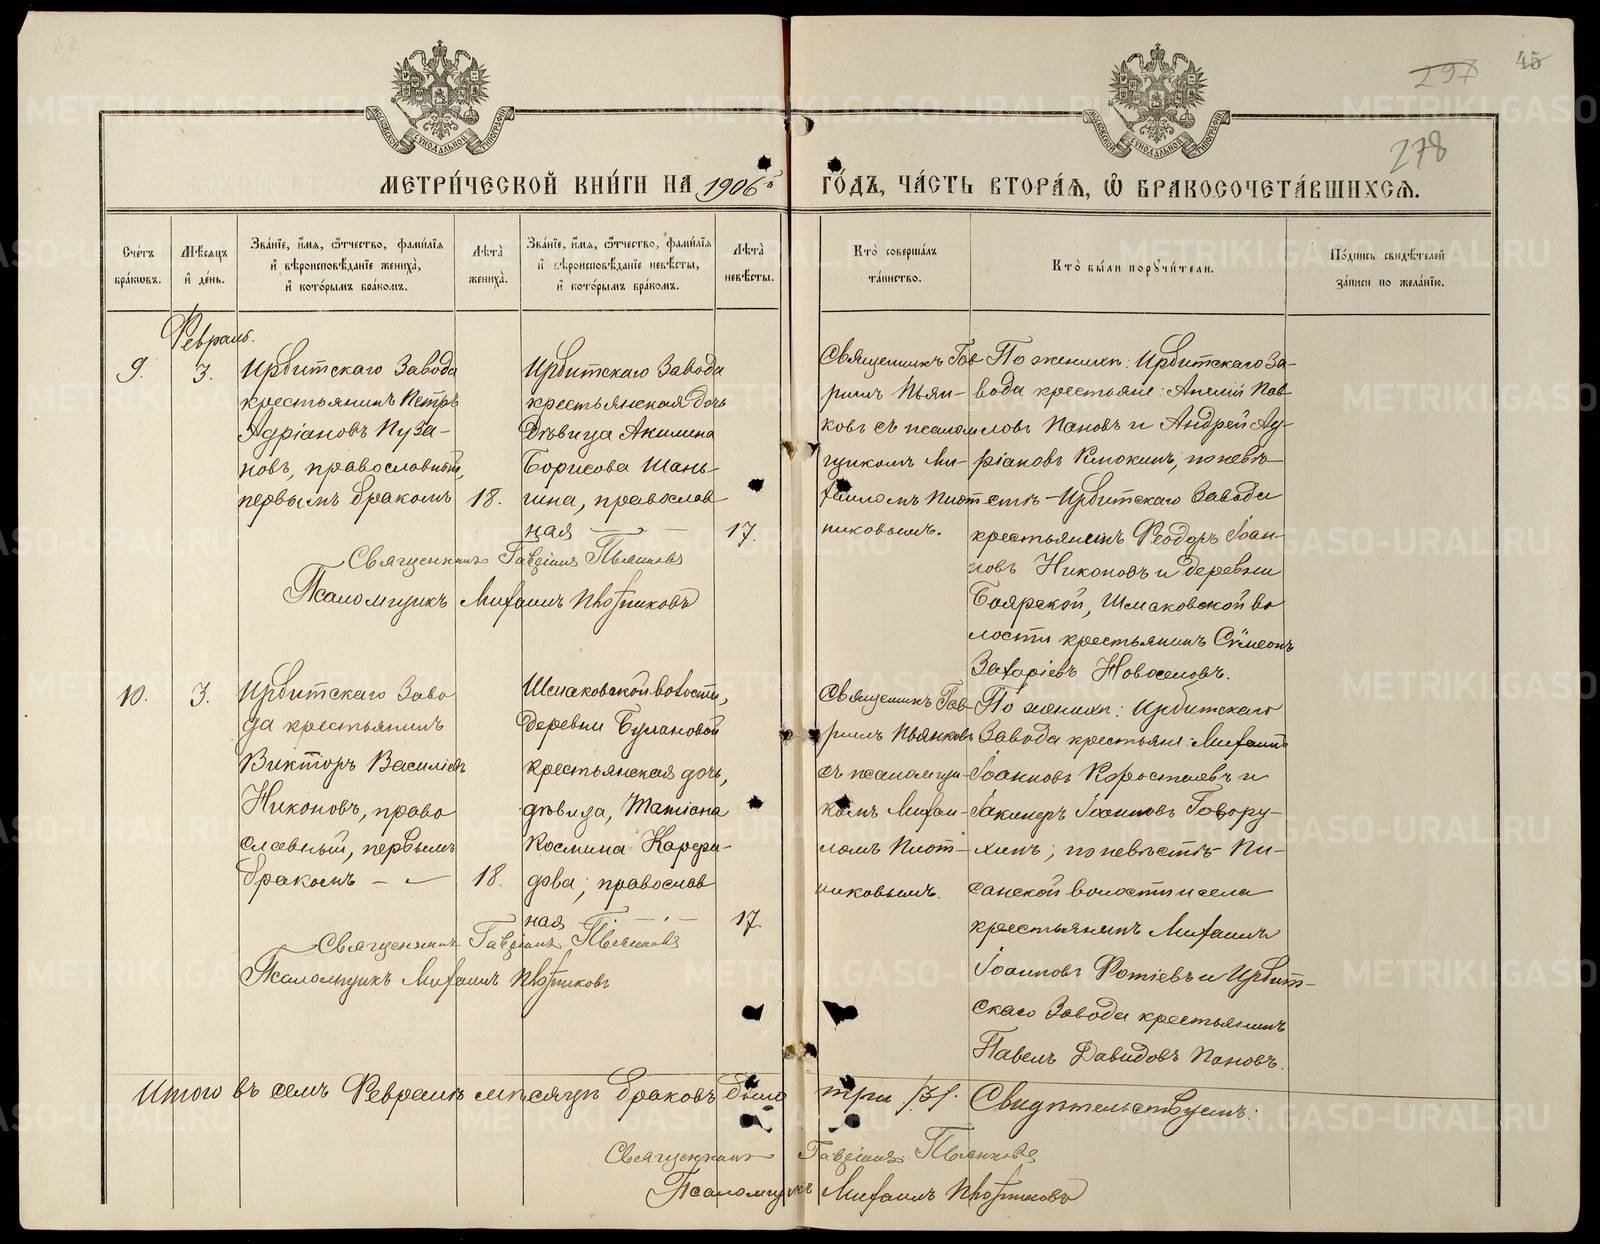 45
297
278
МОСКОВСКОЙ СѴНОДАЛЬНОЙ ТИПОГРАФІИ
МОСКОВСКОЙ СѴНОДАЛЬНОЙ ТИПОГРАФІИ
МЕТРИ́ЧЕСКОЙ КНИ́ГИ НА 1906й ГО́ДЪ, ЧА́СТЬ ВТОРА́Ѧ, Ѽ БРАКОСОЧЕТА́ВШИХСѦ.
Сче́тъ бра́кѡвъ.
Мѣ́сѧцъ и҆ де́нь.
Зва́нїе, и҆́мѧ, ѻ҆́тчество, фами́лїѧ и҆ вѣроисповѣ́данїе жениха̀, и҆ кото́рымъ бра́комъ.
Лѣ́та жениха̀.
Зва́нїе, и҆́мѧ, ѻ҆́тчество, фами́лїѧ и҆ вѣроисповѣ́данїе невѣ́сты, и҆ кото́рымъ бра́комъ.
Лѣ́та невѣ́сты.
Кто̀ соверша́лъ та́инство.
Кто̀ бы́ли порꙋчи́тели.
По́дпись свидѣ́телей за́писи по жела́нїю.
Февраль.
9.
3.
Ирбитскаго Завода
крестьянинъ Петръ
Адріановъ Пуза-
новъ, православный,
первымъ бракомъ
18.
Ирбитскаго Завода
крестьянская дочь
дѣвица Акилина
Борисова Шань-
гина, православ
ная
17.
Священникъ Гав
риилъ Пьян-
ковъ съ псалом
щикомъ Ми-
хаиломъ Плот
никовымъ.
По женихѣ: Ирбитскаго За-
вода крестьяне: Анѳимъ Пав
ловъ Пановъ и Андрей Ад-
ріановъ Клюкинъ; по невѣ
стѣ - Ирбитскаго Завода
крестьянинъ Ѳеодоръ Іоан-
новъ Никоновъ и деревни
Боярской, Шмаковской во
лости крестьянинъ Сѵмеонъ
Захаріевъ Новоселовъ.
Священникъ Гавріилъ Пьянковъ
Псаломщикъ Михаилъ Плотниковъ
10.
3.
Ирбитскаго Заво
да крестьянинъ
Викторъ Василіевъ
Никоновъ, право
славный, первымъ
бракомъ
18.
Шмаковской волости,
деревни Булановой
крестьянская дочь,
дѣвица, Татіана
Космина Карфи-
дова; православ
ная
17
Священникъ Гав-
риилъ Пьянковъ
съ псаломщи-
комъ Михаи-
ломъ Плот-
никовымъ.
По женихѣ: Ирбитскаго
Завода крестьяне: Михаилъ
Іоанновъ Коростелевъ и
Іакинѳъ Іоанновъ Говору-
хинъ; по невѣстѣ - Пи-
санской волости и села
крестьянинъ Михаилъ
Іоанновъ Фотіевъ и Ирбит-
скаго Завода крестьянинъ
Павелъ Давидовъ Пановъ.
Священникъ Гавріилъ Пьянковъ
Псаломщикъ Михаилъ Плотниковъ
Итого въ семъ Февралѣ мѣсяцѣ браковъ было три /3/. Свидѣтельствуемъ:
Священникъ Гавріилъ Пьянковъ
Псаломщикъ Михаилъ Плотниковъ
METRIKI.GASO-URAL.RU